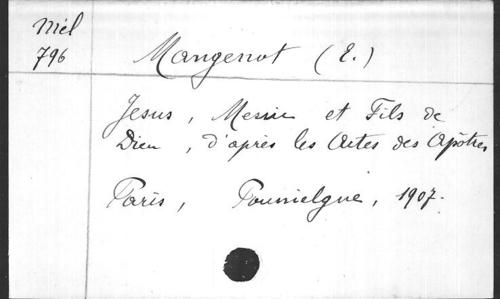 Mél
796
Mangenot (E.)
Jésus, Messie et Fils de
Dieu, d'après les Actes des Apôtres
Paris, Poussielgue, 1907.